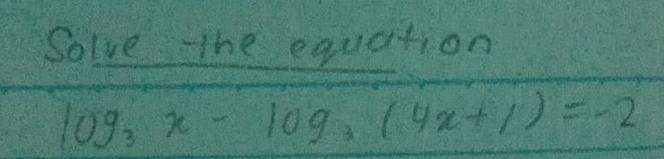 Solve the equation
log₃ x - log₃ (4x+1) = -2